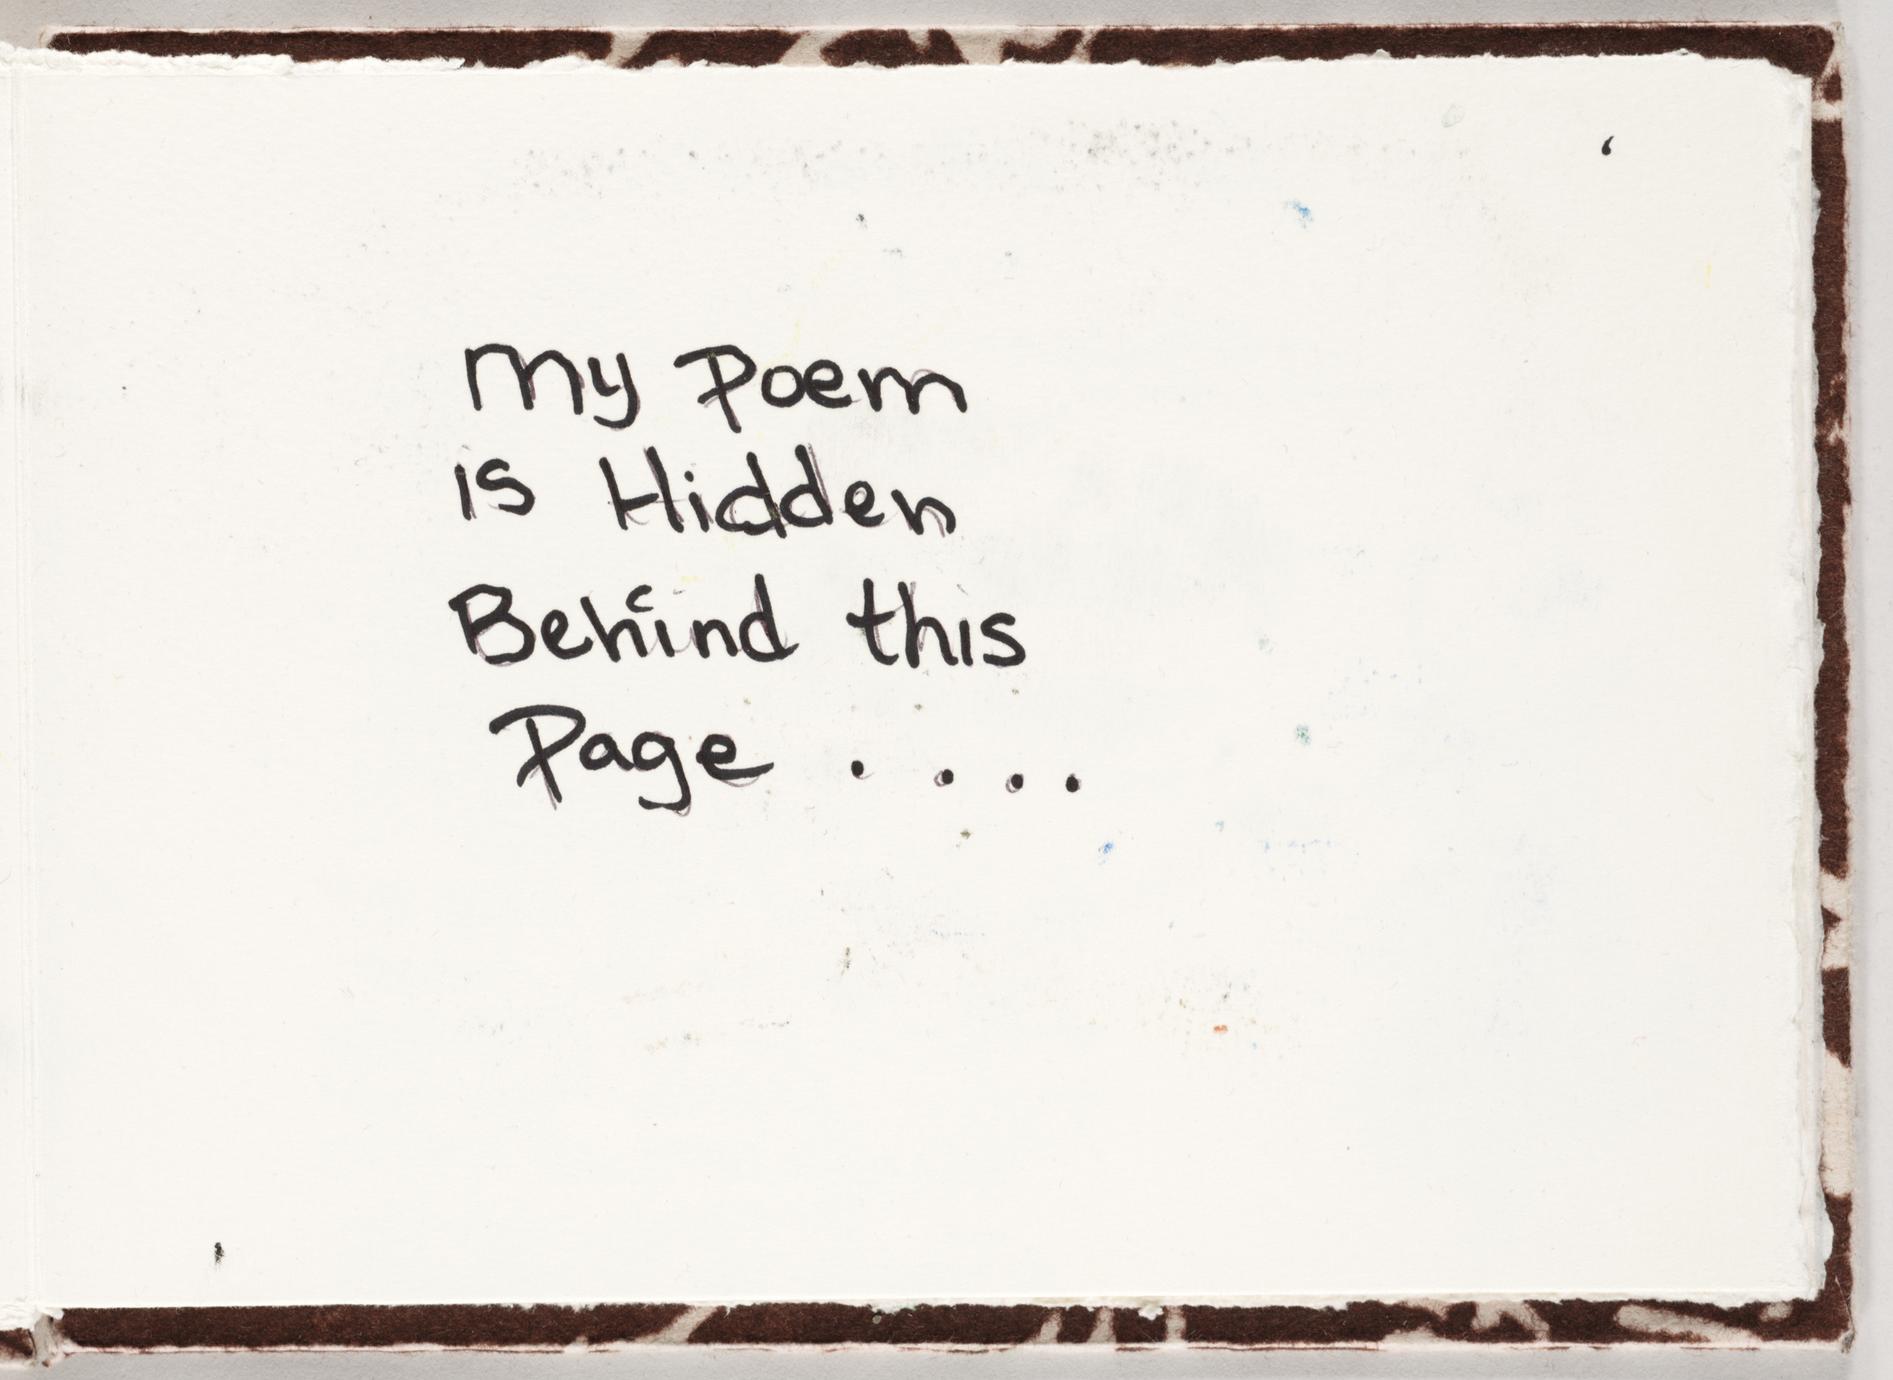 My Poem
is Hidden
Behind this
Page ....